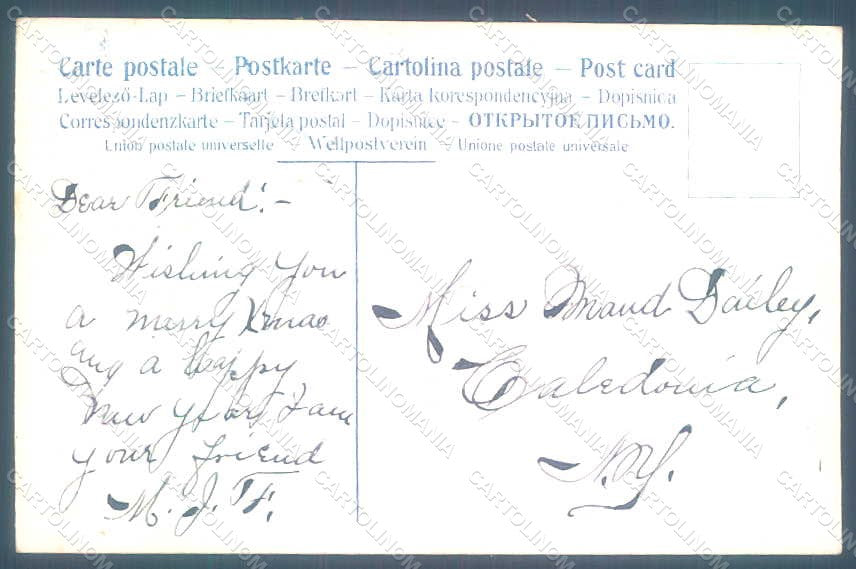 Carte postale – Postkarte – Cartolina postale – Post card
Levelező-Lap – Briefkaart – Brefkort – Karta korespondencyjna – Dopisnica
Correspondenzkarte – Tarjeta postal – Dopisnice – ОТКРЫТОЕ ПИСЬМО.
Union postale universelle – Weltpostverein – Unione postale universale
Dear Friend:–
Wishing you
a merry Xmas
and a happy
New year I am
your friend
M. J. F.
Miss Maud Dailey,
Caledonia,
N.Y.
CARTOLINOMANIA